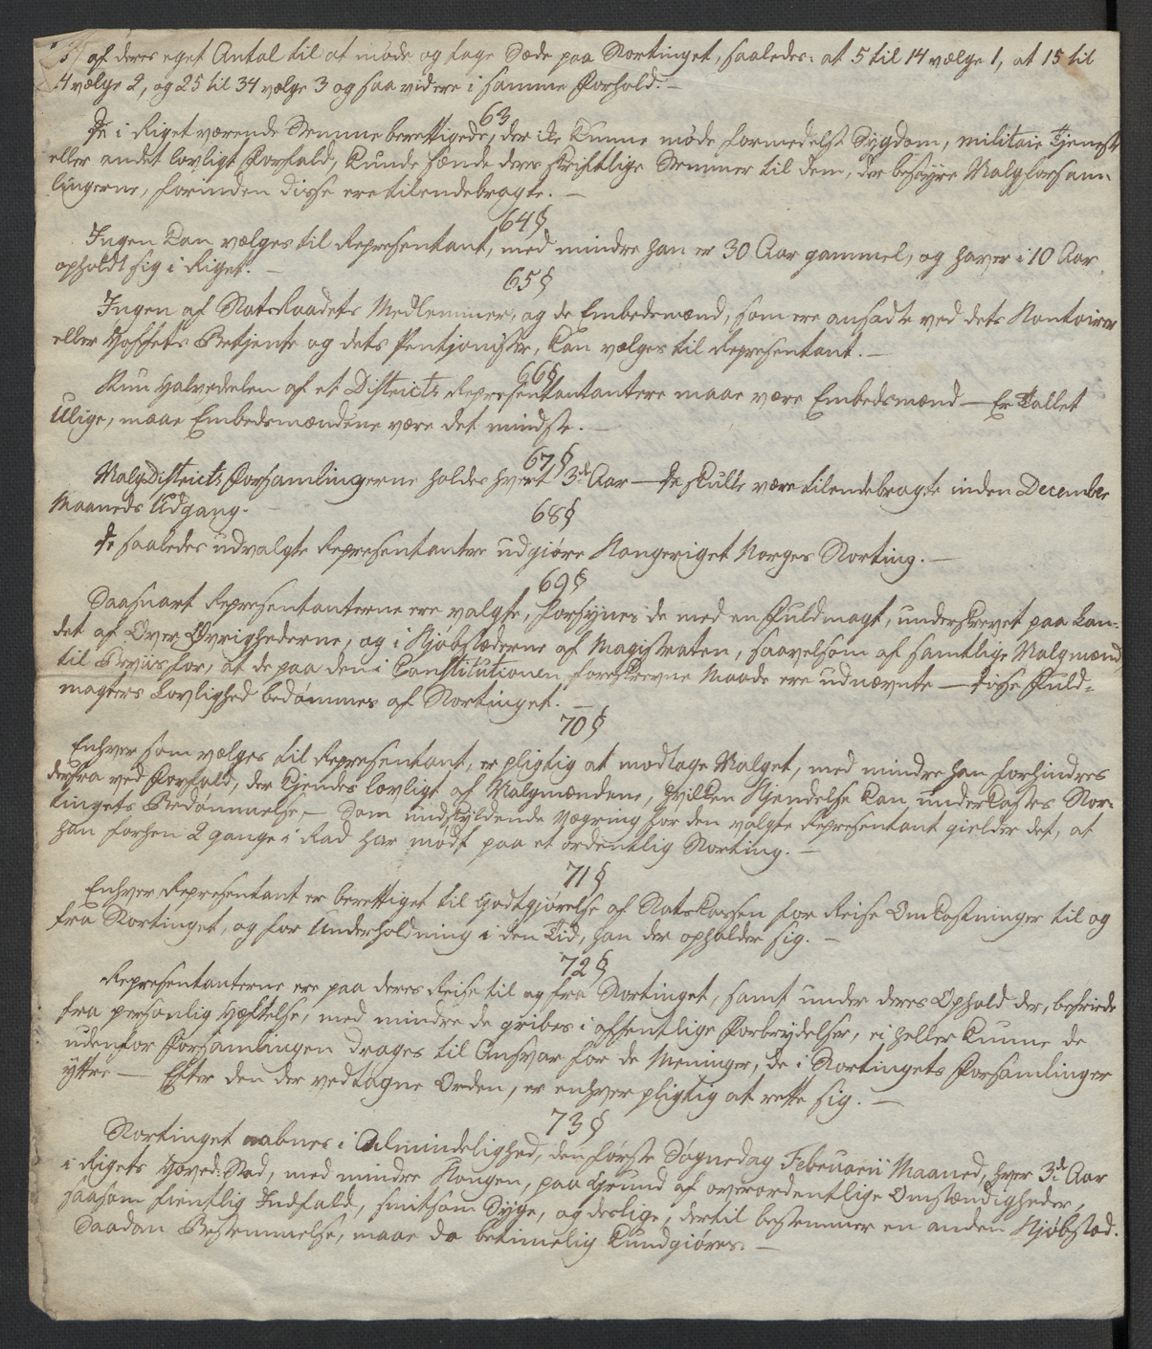 af deres eget Antal til at møde og tage Sæde paa Storting​et, saaledes: at 5 til 14 vælge 1, at 15 til
4 vælge 2, og 25 til 34 vælge 3 og saa videre i samme Forhold. —
63
De i Riget værende Stemmeberettigede, der ikke kunne møde formedelst Sygdom, militair Tjeneste
eller andet lovligt Forfald, kunde sende deres skriftlige Stemmer til dem, der bestyre Valgforsam-
lingerne, forinden disse ere tilendebragte. —
64§
Ingen kan vælges til Repræsentant, med mindre han er 30 Aar gammel, og haver i 10 Aar
opholdt sig i Riget. —
65§
Ingen af StatsRaadets Medlemmer, og de Embedsmænd, som ere ansadte ved dets Kontoirer
eller Hoffets Betjente og dets Pentjonister, kan vælges til Representant. —
66§
Kun Halvedelen af et Districts Represententantere maae være Embedsmænd — Er Tallet
Ulige, maae Embedsmændene være det mindste. —
67§
ValgDistricts Forsamlingerne holdes hvert 3de Aar — De skulle være tilendebragte inden December
Maaneds Udgang. —
68§
De saaledes udvalgte Representantere udgjøre Kongeriget Norges Storting. —
69§
Saasnart Representanterne ere valgte, forsynes de med en Fuldmagt, underskrevet paa Lan-
det af Over Øvrighederne, og i Kjøbstæderne af Magistraten, saavelsom af samtlige Valgmænd
til Beviis for, at de paa den i Constitutionen foreskrevne Maade ere udnævnte — Disse Fuld-
magters Lovlighed bedømmes af Stortinget. —
70§
Enhver som vælges til Representant, er pligtig at modtage Valget, med mindre han forhindres
derfra ved Forfald, der kjendes lovligt af Valgmændene, hvilken Kjendelse kan underkastes Stor-
tingets Bedømmelse, — Som undskyldende Vægring for den valgte Representant gielder det, at
han forhen 2 gange i Rad har mødt paa et ordentlig Storting. —
71§
Enhver Representant er berettiget til Godtgjørelse af Statskassen for Reise Omkostninger til og
fra Stortinget, og for Underholdning i den Tid, han der opholder sig. —
72§
Representanterne ere paa deres Reise til og fra Stortinget, samt under deres Ophold der, befriede
fra personlig Hæftelse, med mindre de gribes i offentlige Forbrydelser, ei heller kunne de
udenfor Forsamlingen drages til Ansvar for de Meninger, de i Stortingets Forsamlinger
yttre — Efter den der vedtagne Orden, er enhver pligtig at rette sig. —
73§
Stortinget aabnes i Almindelighed, den første Søgnedag Februarii Maaned, hver 3de Aar
i Rigets Hoved-Stad, med mindre Kongen, paa Grund af overordentlige Omstændigheder,
saasom fiendtlig Indfald, smitsom Syge, og deslige, dertil bestemmer en anden Kjøbstad.
Saadan Bestemmelse, maae da betimelig kundgiøres. —